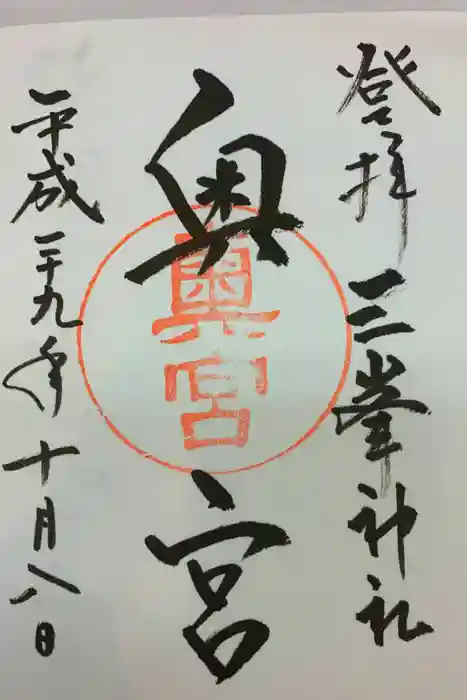 登拝 三峯神社
奥宮
奥宮
平成二十九年十月八日